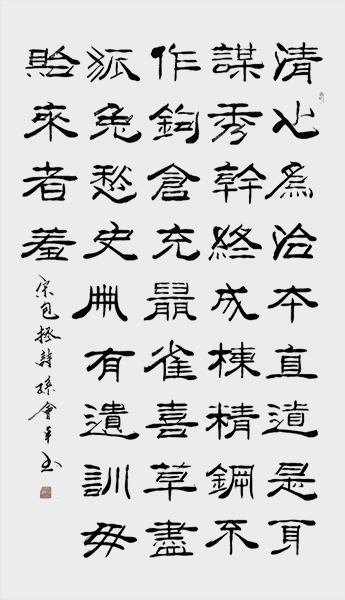 清心為治本直道是身
謀秀幹終成棟精鋼不
作鉤倉充鼠雀喜草盡
狐兔愁史冊有遺訓毋
貽來者羞
宋包拯詩孫會书